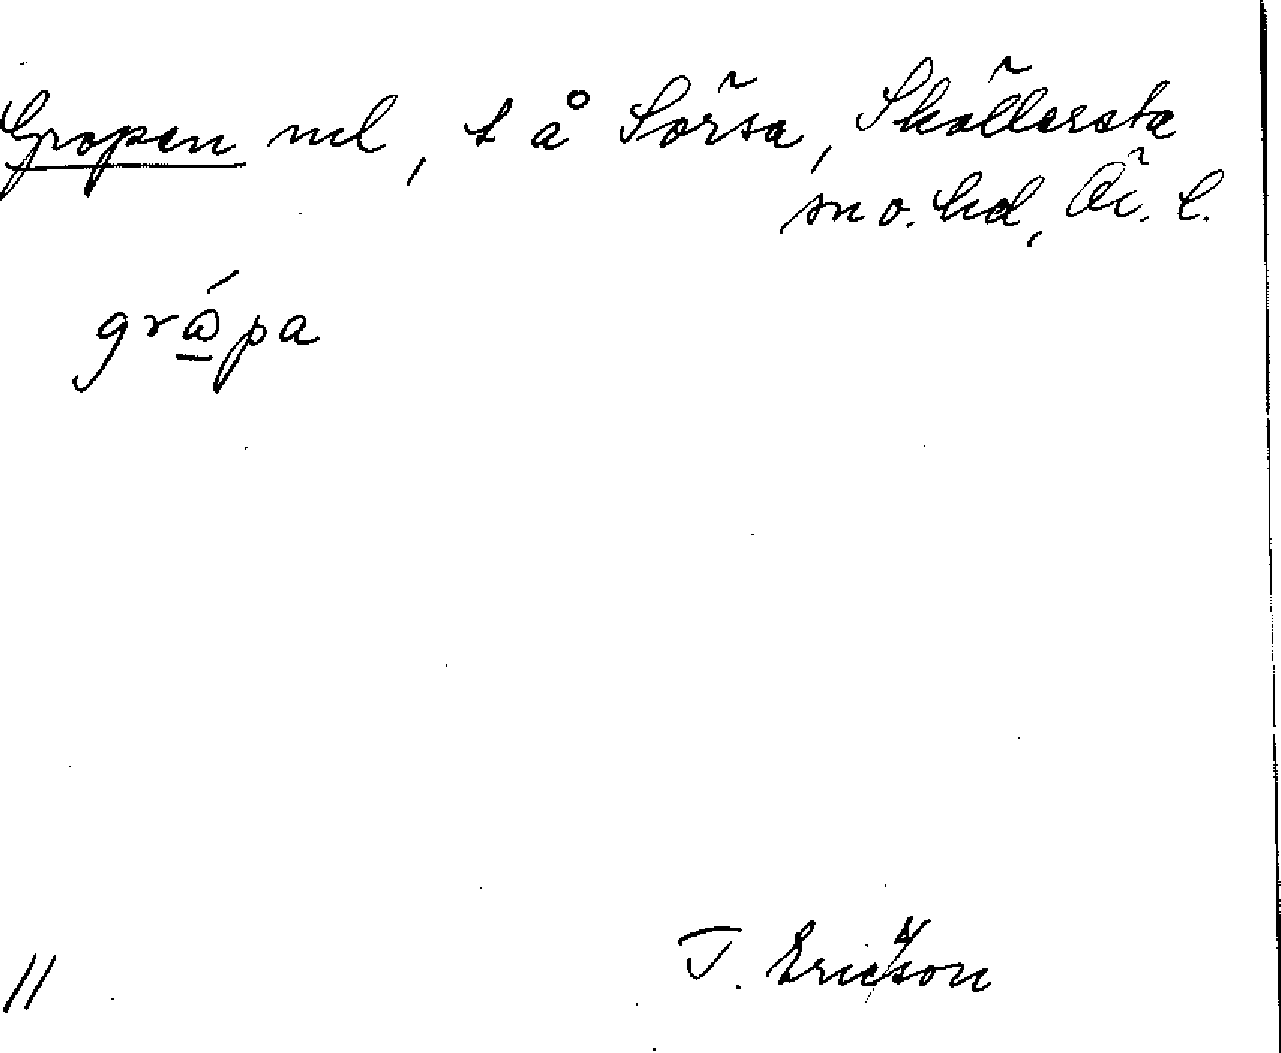 Gropen nel, t å Sörsa, Sköllersta
sn o. hd, Ör. l.
grǻ̲pa
T. Ericsson
11